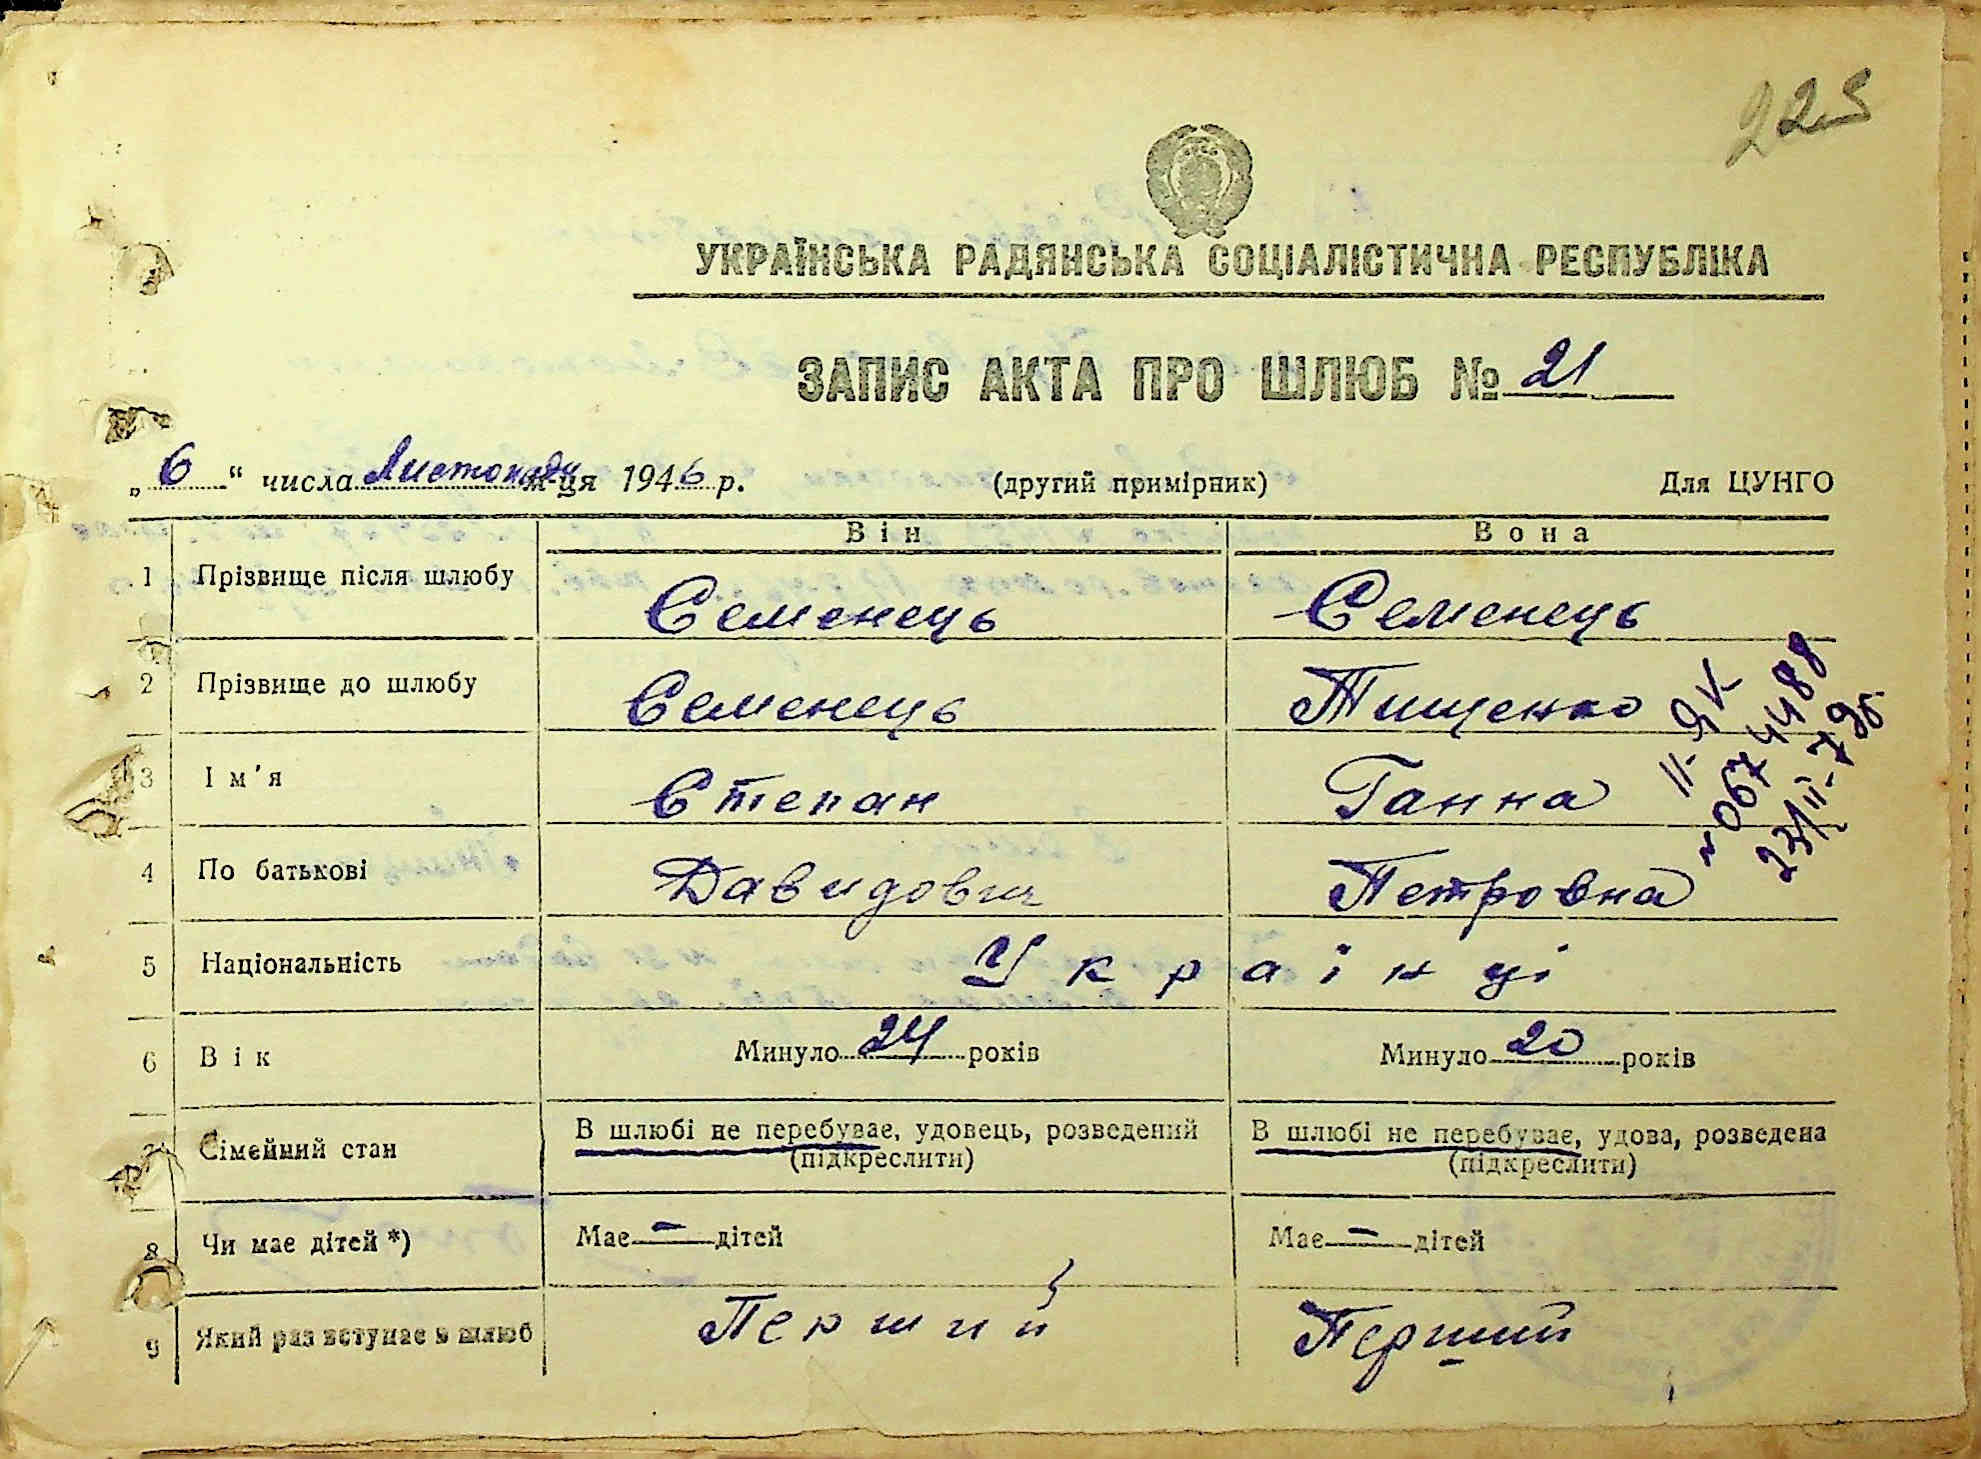 225
УКРАЇНСЬКА РАДЯНСЬКА СОЦІАЛІСТИЧНА РЕСПУБЛІКА
ЗАПИС АКТА ПРО ШЛЮБ № 21
„ 6 “ числа Листопаду м-ця 1946 р. (другий примірник) Для ЦУНГО
Він Вона
1 Прізвище після шлюбу Семенець Семенець
2 Прізвище до шлюбу Семенець Тищенко
3 Ім'я Степан Ганна
II-ЯК
№ 0674488
23/II-79р.
4 По батькові Давидович Петровна
5 Національність Українці
6 Вік Минуло 24 років Минуло 20 років
7 Сімейний стан В шлюбі не перебуває, удовець, розведений В шлюбі не перебуває, удова, розведена
(підкреслити) (підкреслити)
8 Чи має дітей *) Має — дітей Має — дітей
9 Який раз вступає в шлюб Перший Перший